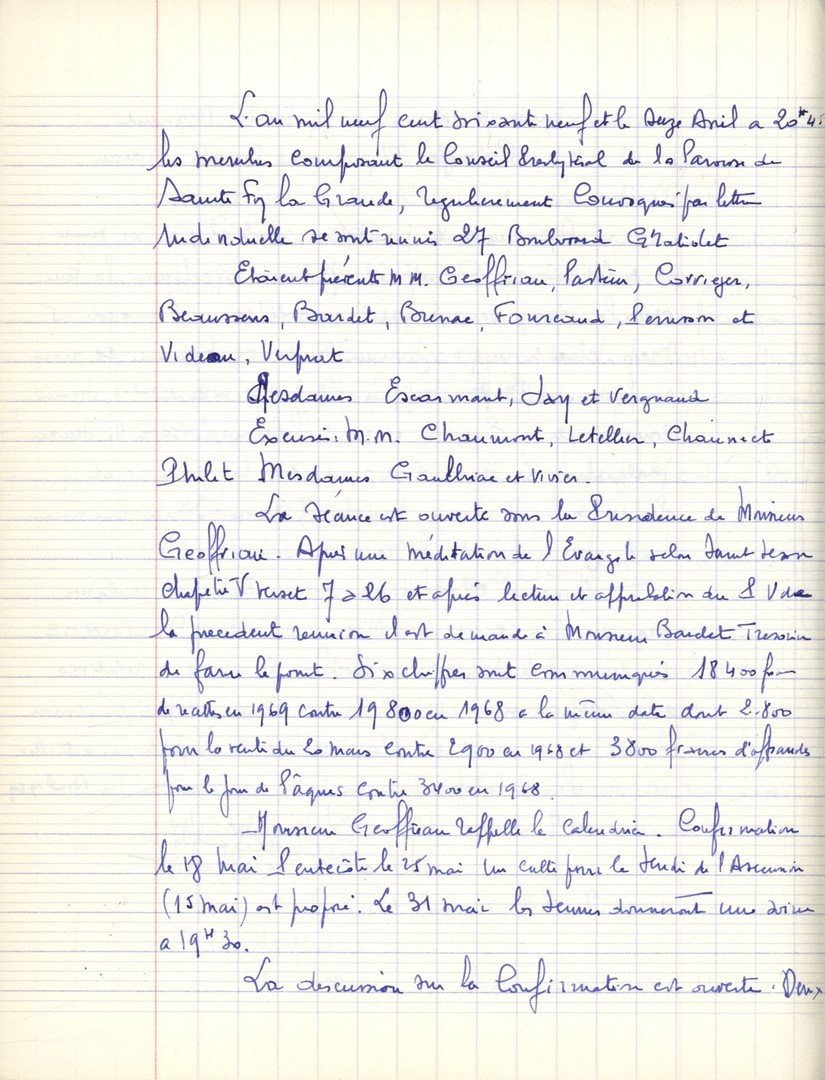 L'an mil neuf cent soixante neuf et le seize Avril a 20H45
les membres composant le Conseil Presbytéral de la Paroisse de
Sainte Foy la Grande, regulierement convoqués par lettre
individuelle se sont réunis 27 Boulevard Gratiolet
Etaient présents MM. Geoffriau, Pasteur, Corriger,
Beaussens, Bardet, Brenac, Fourcaud, Perusson et
Videau, Verprat
Mesdames Escarmant, Jay et Vergnaud
Excusés. M.M. Chaumont, Letellier,
Philit Mesdames Gaulhiac et Vivier.
La séance est ouverte sous la Presidence de Monsieur
Geoffriau. Apres une méditation de l'Evangile selon Saint Jean
chapitre V verset 7 a 26 et après lecture et approbation du P V de
la precedent reunion il est demandé à Monsieur Bardet Tresorier
de faire le point. Six chiffres sont communiqués 18400 frs
de recettes en 1969 contre 19800 en 1968 a la même date dont 2.800
pour la vente du 20 mars contre 2900 en 1968 et 3800 francs d'offrandes
pour le jour de Pâques contre 3400 en 1968.
Monsieur Geoffriau rappelle le calendrier. Confirmation
le 18 mai Pentecôte le 25 mai un culte pour le Jeudi de l'Ascension
(15 mai) est proposé. Le 31 mai les Jeunes donneront une soirée
a 19H30.
La discussion sur la Confirmation est ouverte. Deux